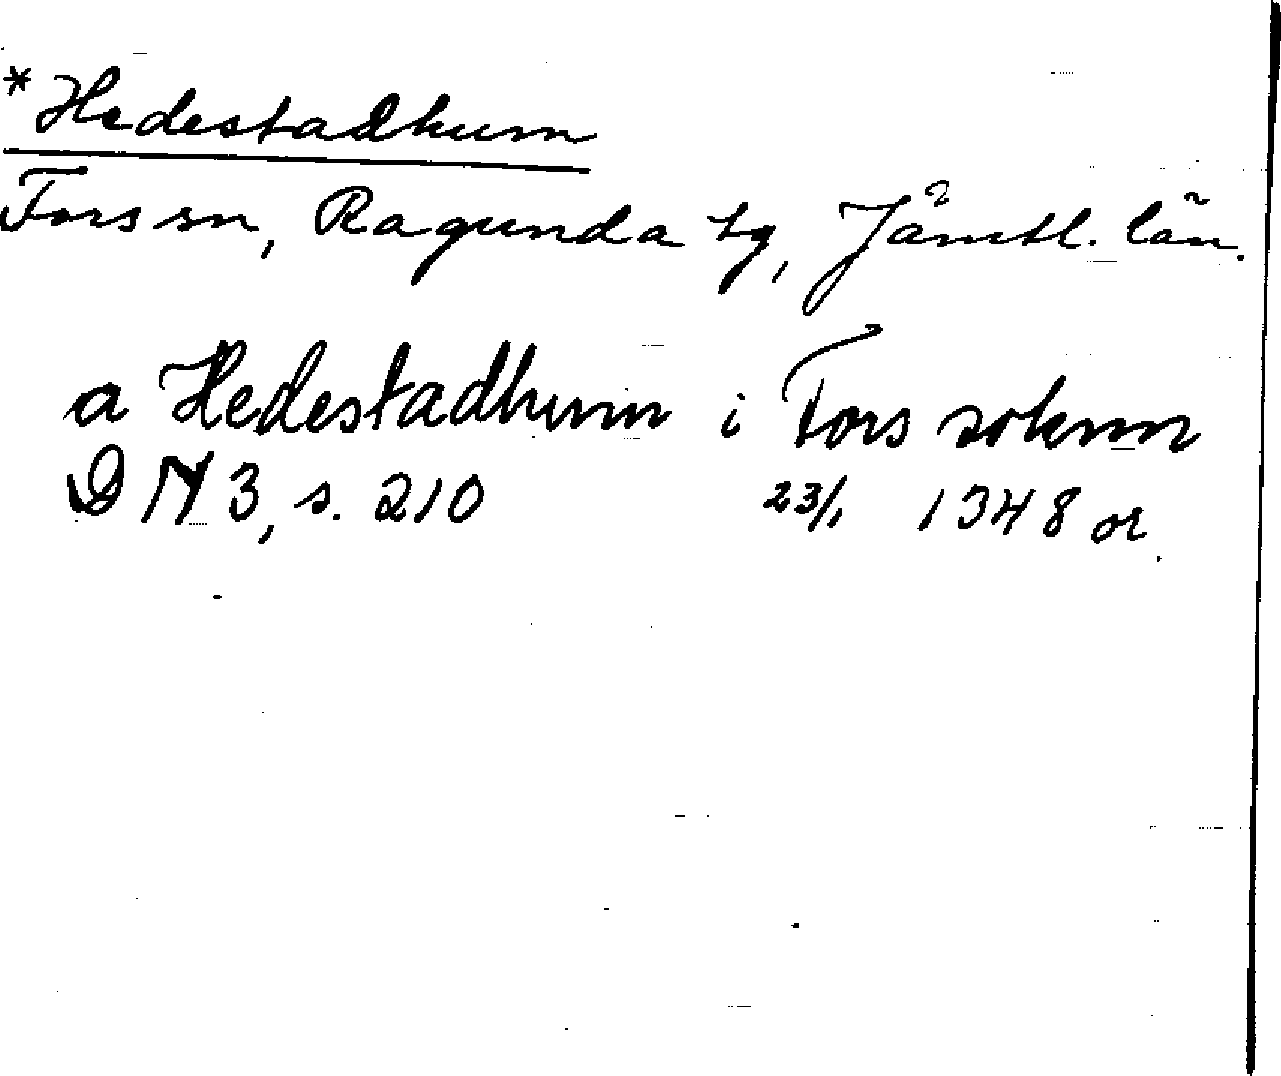 *Hedestadhum
Fors sn, Ragunda tg, Jämtl. län.
a Hedestadhum i Fors soknn
DN 3, s. 210 23/1 1348 or